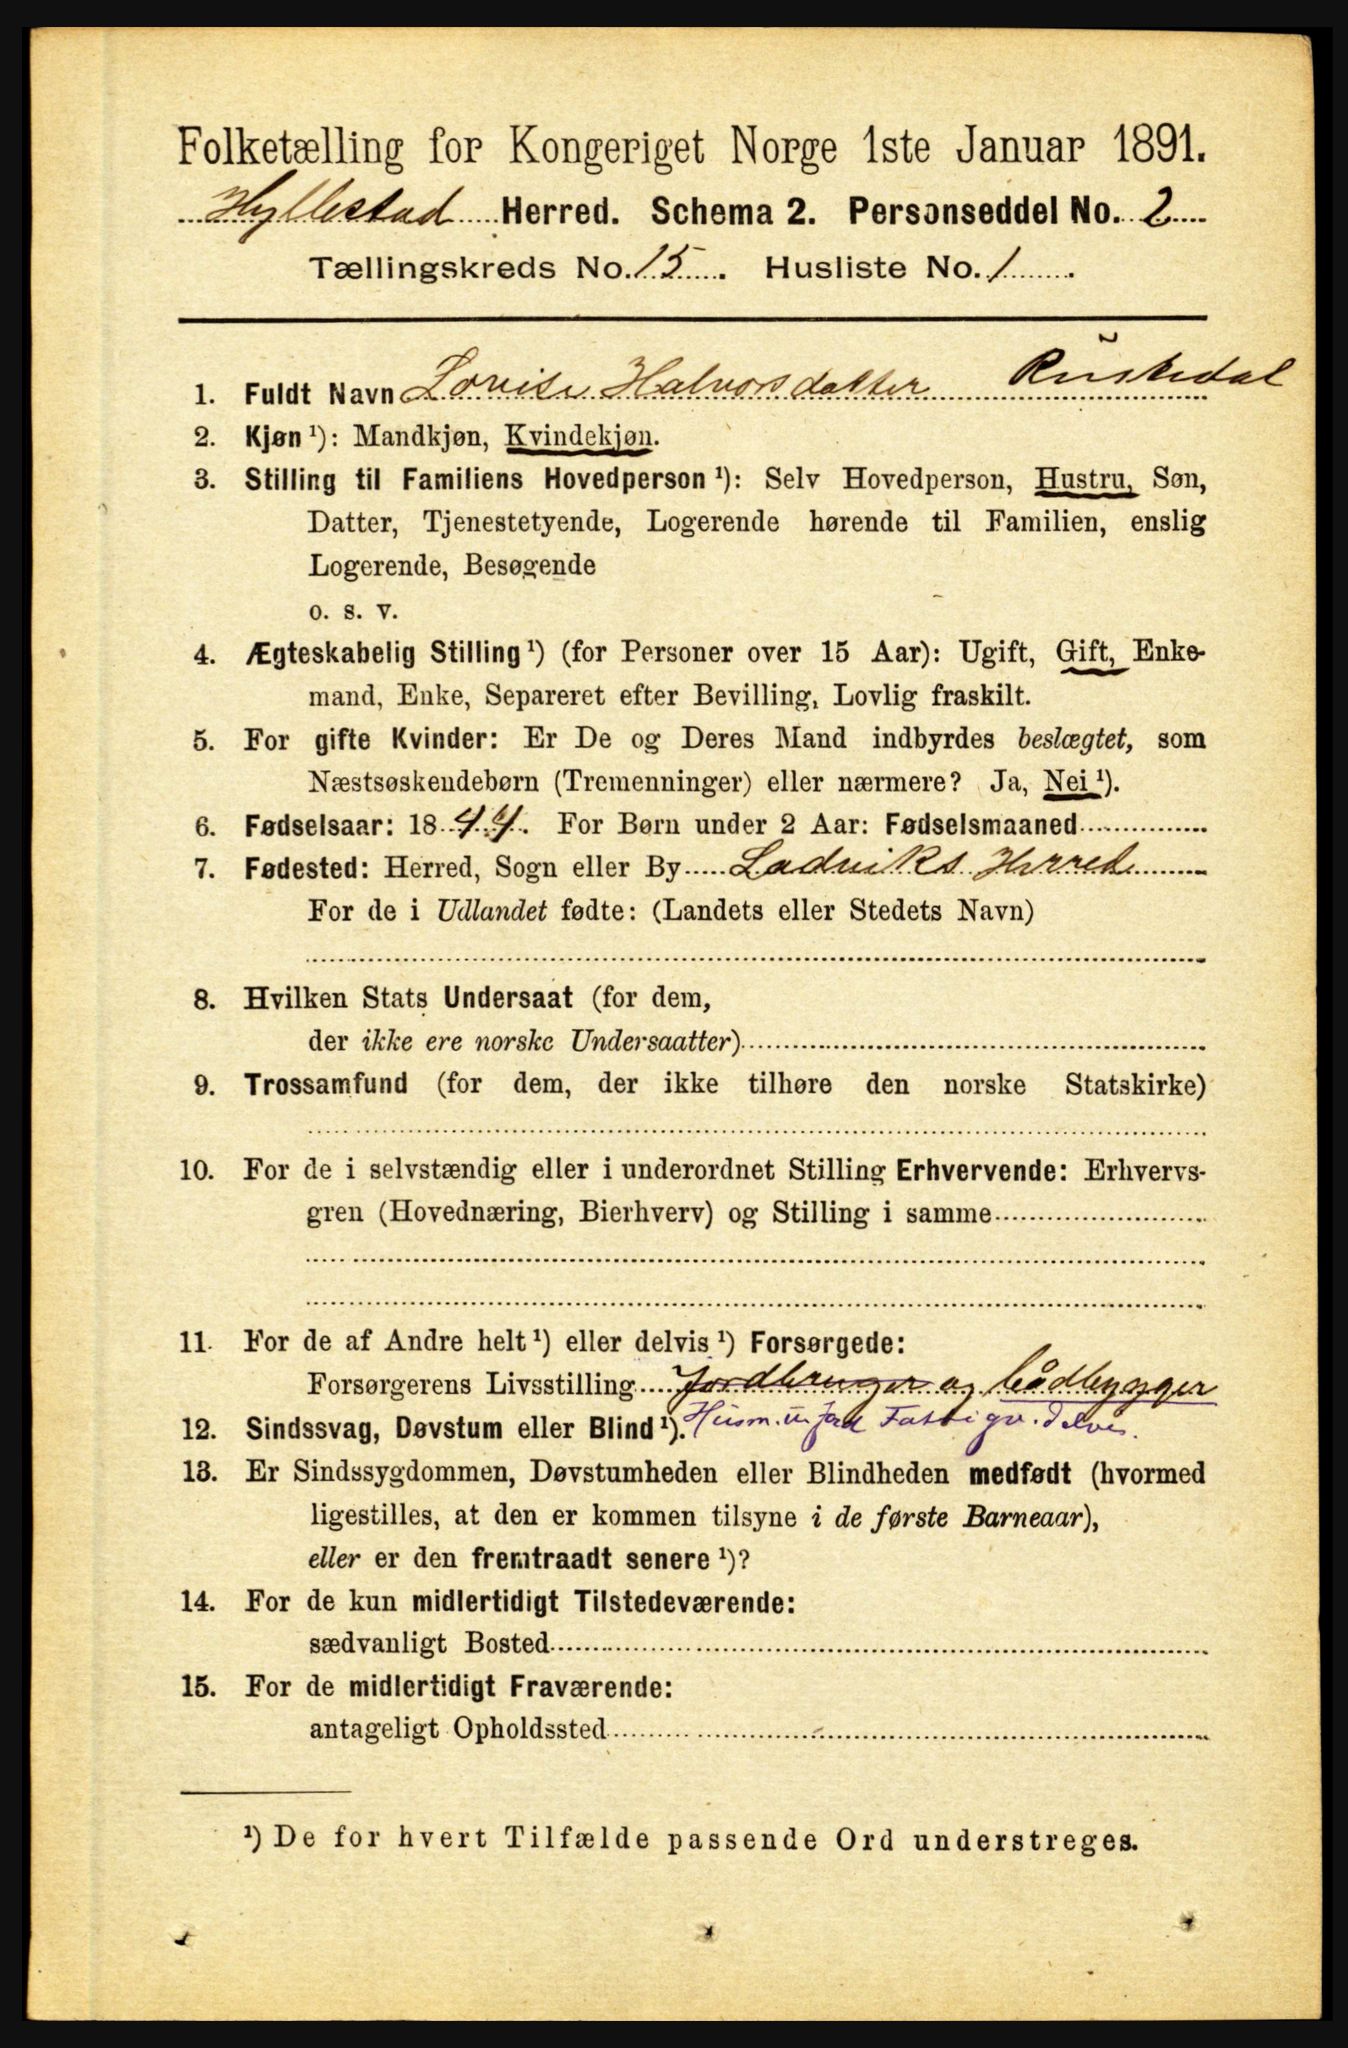 Folketælling for Kongeriget Norge 1ste Januar 1891.
Hyllestad Herred. Schema 2. Personseddel No. 2
Tællingskreds No. 15. Husliste No. 1.
1. Fuldt Navn Lovise Halvorsdatter Ruskedal
2. Kjøn ¹): Mandkjøn, Kvindekjøn.
3. Stilling til Familiens Hovedperson ¹): Selv Hovedperson, Hustru, Søn,
Datter, Tjenestetyende, Logerende hørende til Familien, enslig
Logerende, Besøgende
o. s. v.
4. Ægteskabelig Stilling ¹) (for Personer over 15 Aar): Ugift, Gift, Enke-
mand, Enke, Separeret efter Bevilling, Lovlig fraskilt.
5. For gifte Kvinder: Er De og Deres Mand indbyrdes beslægtet, som
Næstsøskendebørn (Tremenninger) eller nærmere? Ja, Nei ¹).
6. Fødselsaar: 1844. For Børn under 2 Aar: Fødselsmaaned
7. Fødested: Herred, Sogn eller By Ladviks Herred
For de i Udlandet fødte: (Landets eller Stedets Navn)
8. Hvilken Stats Undersaat (for dem,
der ikke ere norske Undersaatter)
9. Trossamfund (for dem, der ikke tilhøre den norske Statskirke)
10. For de i selvstændig eller i underordnet Stilling Erhvervende: Erhvervs-
gren (Hovednæring, Bierhverv) og Stilling i samme
11. For de af Andre helt ¹) eller delvis ¹) Forsørgede:
Forsørgerens Livsstilling Jordbruger og bådbygger
12. Sindssvag, Døvstum eller Blind ¹). Husm. m jord Fattigv. delvis.
13. Er Sindssygdommen, Døvstumheden eller Blindheden medfødt (hvormed
ligestilles, at den er kommen tilsyne i de første Barneaar),
eller er den fremtraadt senere ¹)?
14. For de kun midlertidigt Tilstedeværende:
sædvanligt Bosted
15. For de midlertidigt Fraværende:
antageligt Opholdssted
¹) De for hvert Tilfælde passende Ord understreges.